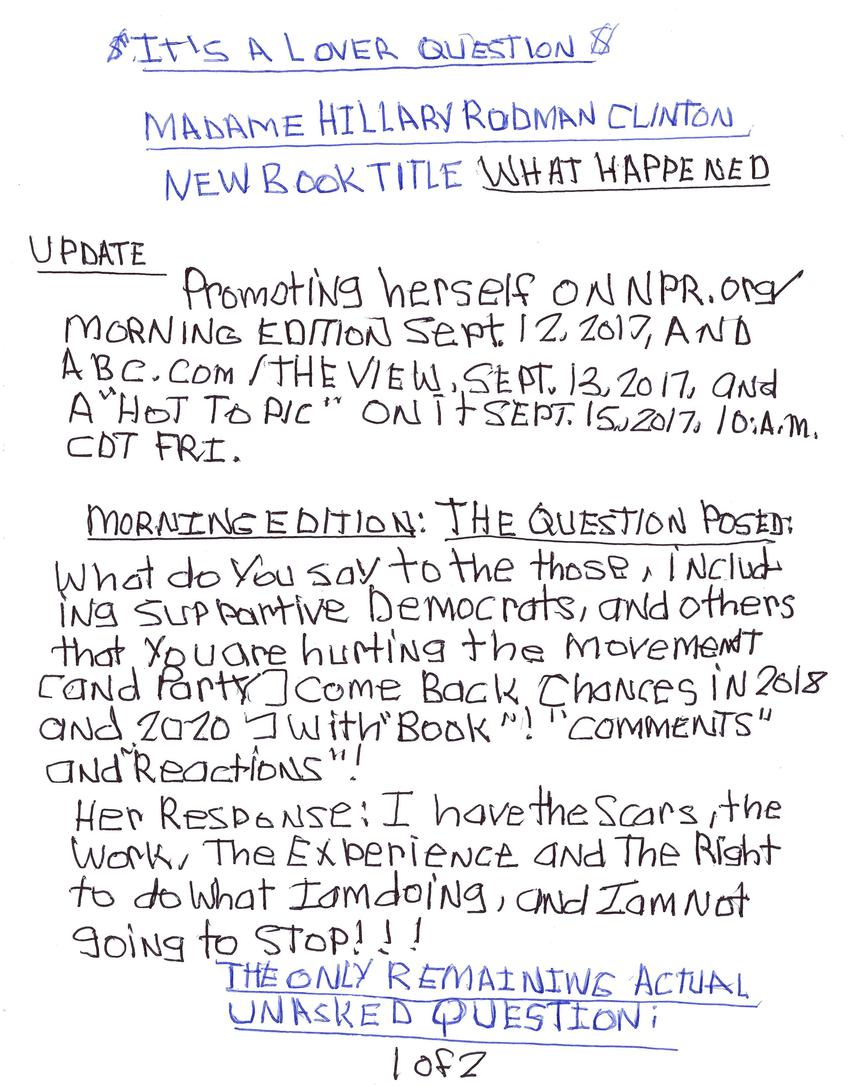 $ IT'S A LOVER QUESTION $
MADAME HILLARY RODMAN CLINTON
NEW BOOK TITLE WHAT HAPPENED
UPDATE
Promoting herself ON NPR.org/
MORNING EDITION Sept. 12, 2017, AND
ABC.Com/THE VIEW, SEPT. 13, 2017, and
A "HOT TOPIC" ON it SEPT. 15, 2017, 10:A.M.
CDT FRI.
MORNING EDITION: THE QUESTION POSED:
What do You say to the those, includ
ing supportive Democrats, and others
that you are hurting the movement
[and Party] come Back Chances in 2018
and 2020 ] With "Book"! "COMMENTS"
and "Reactions"!
Her Response: I have the Scars, the
Work, The Experience and The Right
to do What I am doing, and I am Not
going to STOP!!!
THE ONLY REMAINING ACTUAL
UNASKED QUESTION:
1 of 2